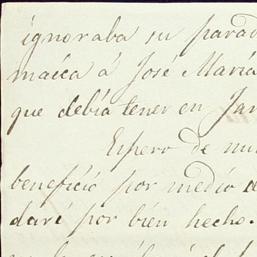 ignoraba su parad
maica á José María
que debía tener en Jar
Espero de mu
benefició por medio d
daré por bien hecho.